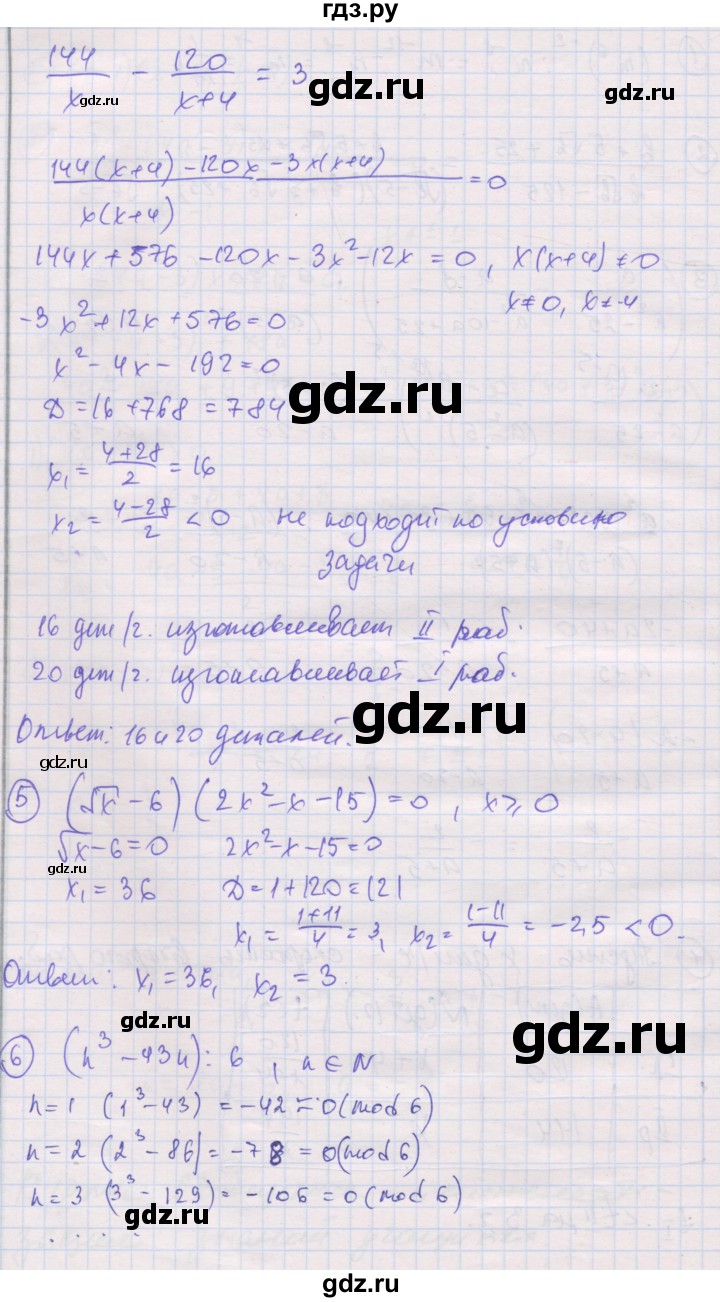 гдз.ру
144/x - 120/(x+4) = 3
gdz.ru gdz.ru gdz.ru
(144(x+4) - 120x - 3x(x+4))/(x(x+4)) = 0
144x + 576 - 120x - 3x² - 12x = 0, x(x+4) ≠ 0
x ≠ 0, x ≠ -4
-3x² + 12x + 576 = 0
x² - 4x - 192 = 0
gdz.ru
D = 16 + 768 = 784
x₁ = (4+28)/2 = 16
x₂ = (4-28)/2 < 0 не подходит по условию
задачи
16 дет/г. изготавливает II раб.
20 дет/г. изготавливает I раб.
gdz.ru
Ответ: 16 и 20 деталей.
gdz.ru
⑤ (√x - 6)(2x² - x - 15) = 0, x ⩾ 0
√x - 6 = 0 2x² - x - 15 = 0
gdz.ru
x₁ = 36 D = 1 + 120 = 121
x₁ = (1+11)/4 = 3, x₂ = (1-11)/4 = -2,5 < 0.
Ответ: x₁ = 36, x₂ = 3.
gdz.ru
⑥ (n³ - 43n) : 6, n ∈ N
n = 1 (1³ - 43) = -42 = 0(mod 6)
n = 2 (2³ - 86) = -78 = 0(mod 6)
n = 3 (3³ - 129) = -106 = 0(mod 6)
gdz.ru gdz.ru
. . . .
gdz.ru